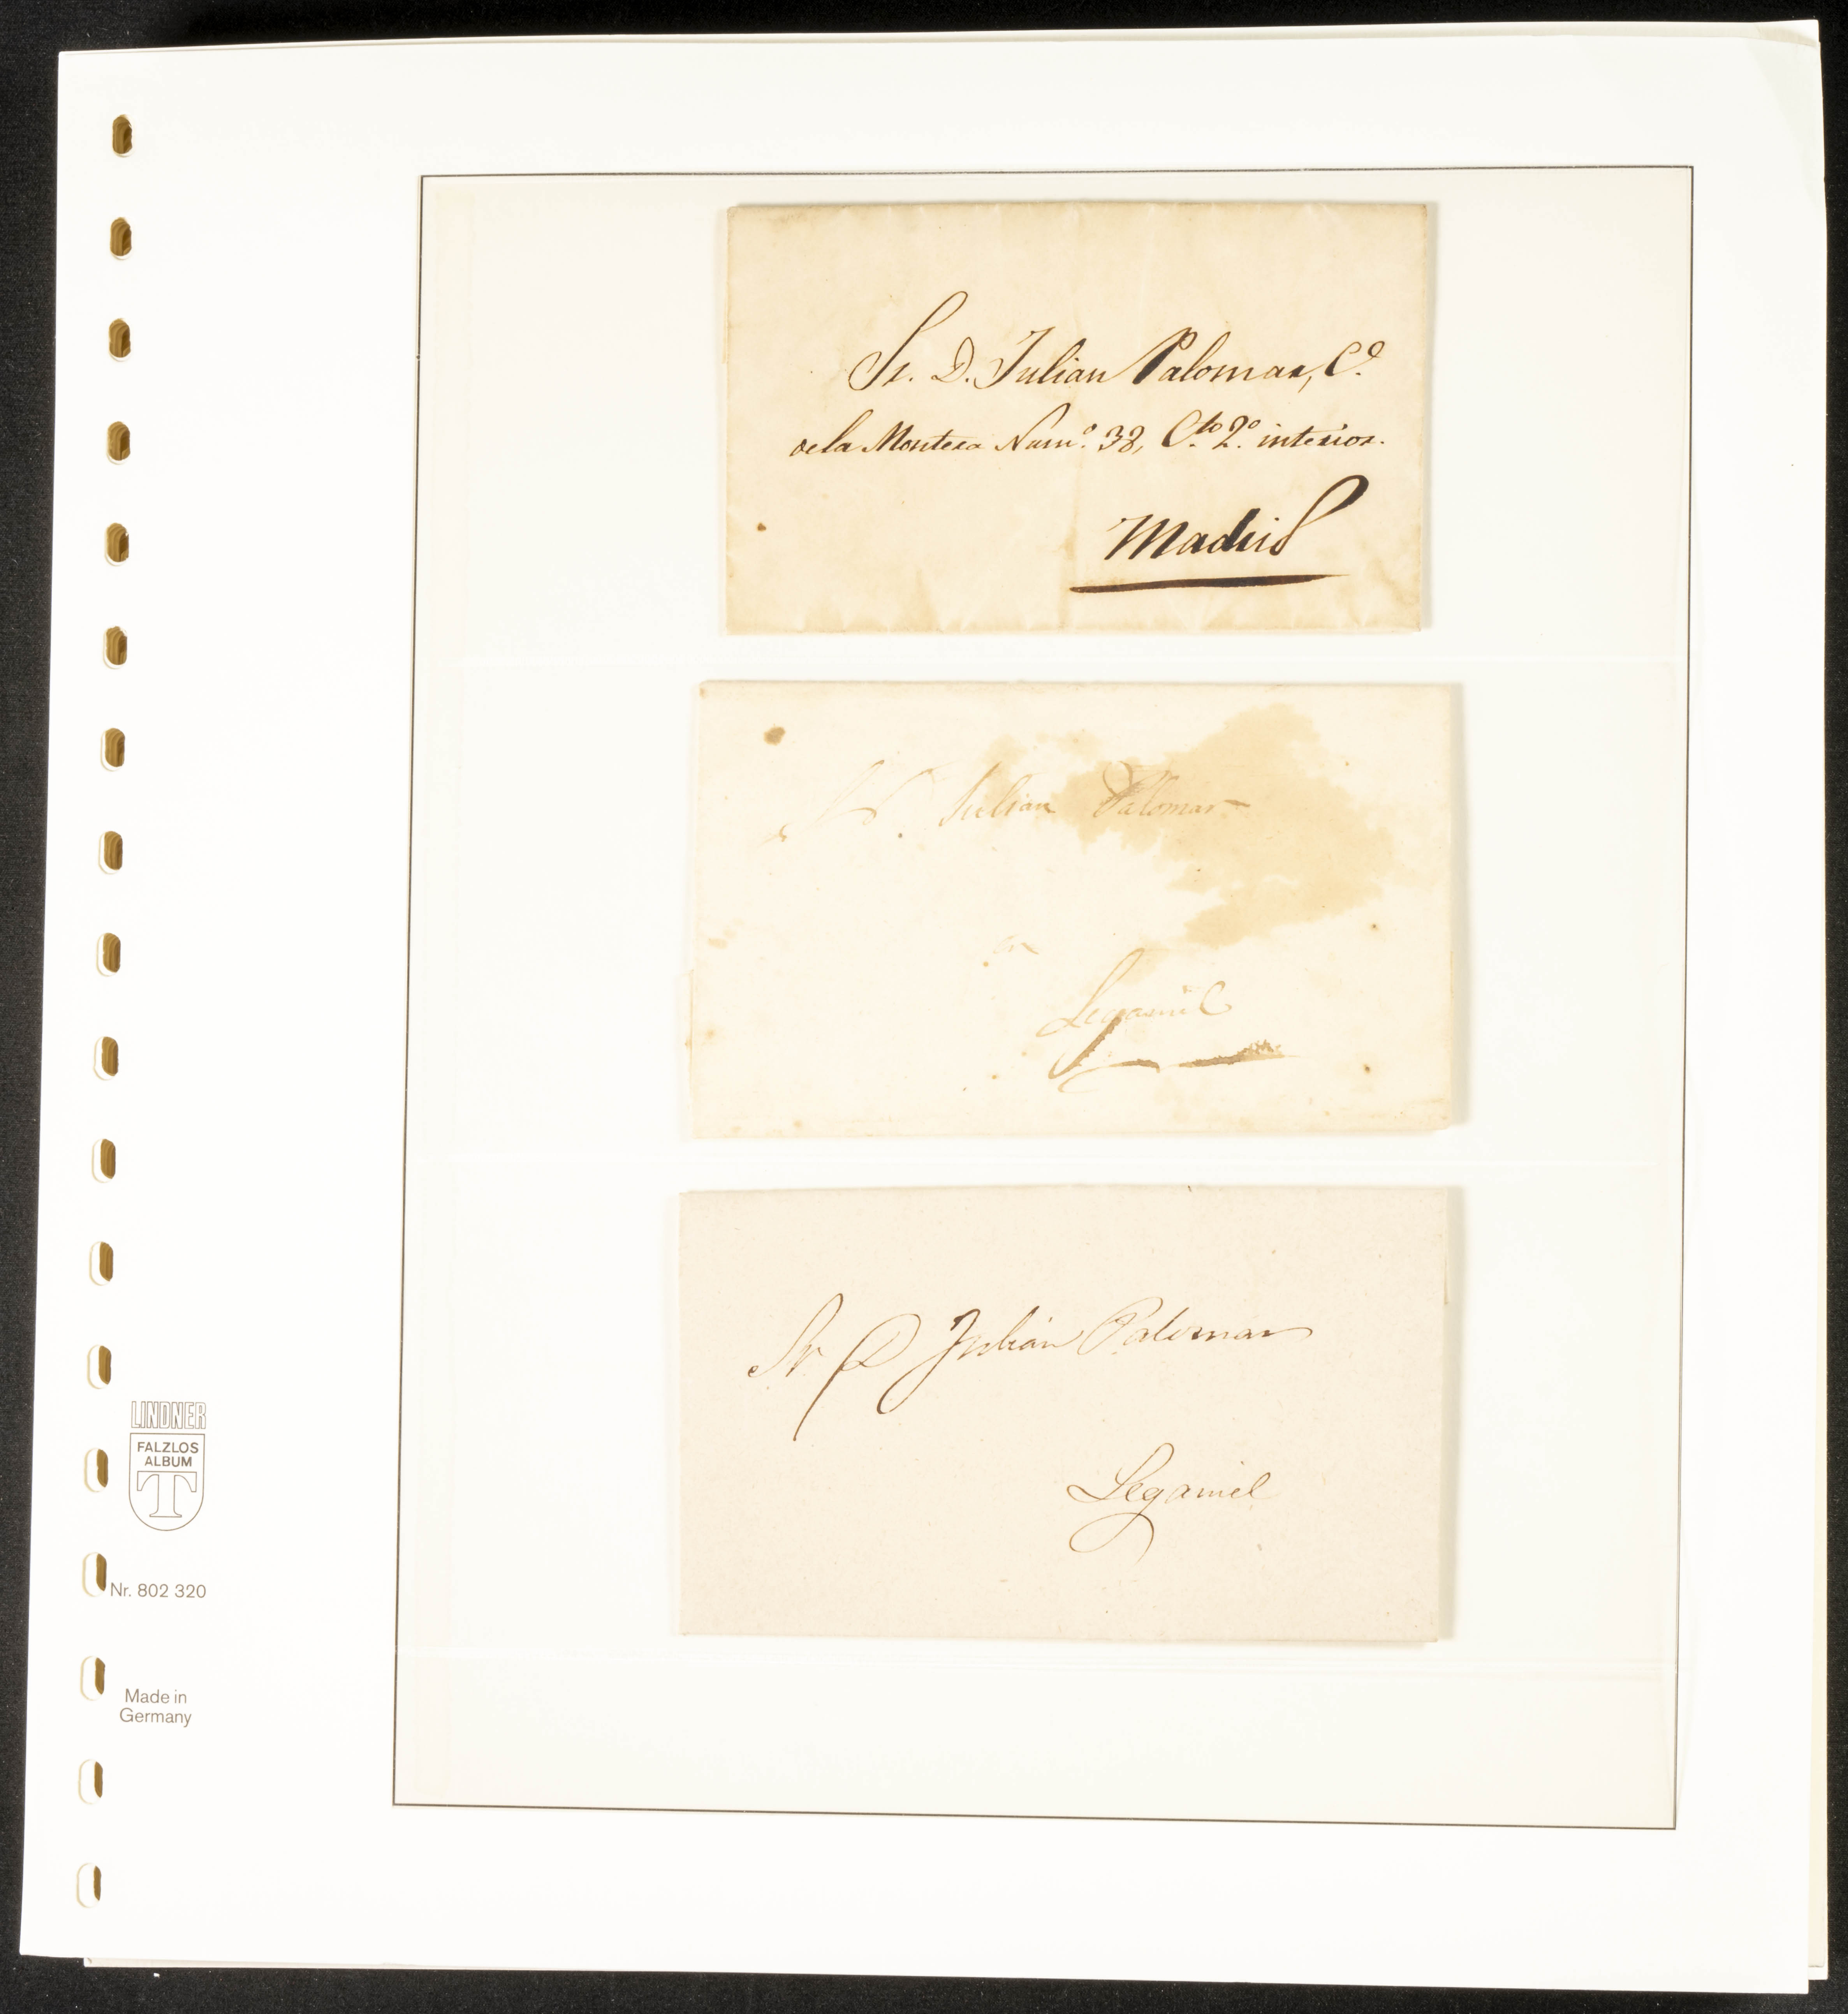 Sr. D. Julian Palomar, C.ᵉ
de la Montera Num.º 38, C.ᵗᵒ 2.º interior.
Madrid
Sr. D. Julian Palomar
en
Legamiel
Sr D Julián Palomar
Legamiel
LINDNER
FALZLOS
ALBUM
T
Nr. 802 320
Made in
Germany